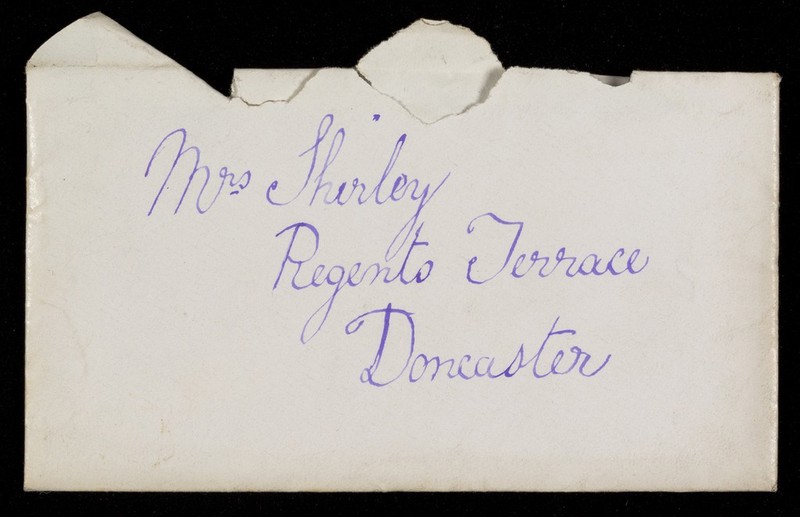 Mrs Shirley
Regents Terrace
Doncaster